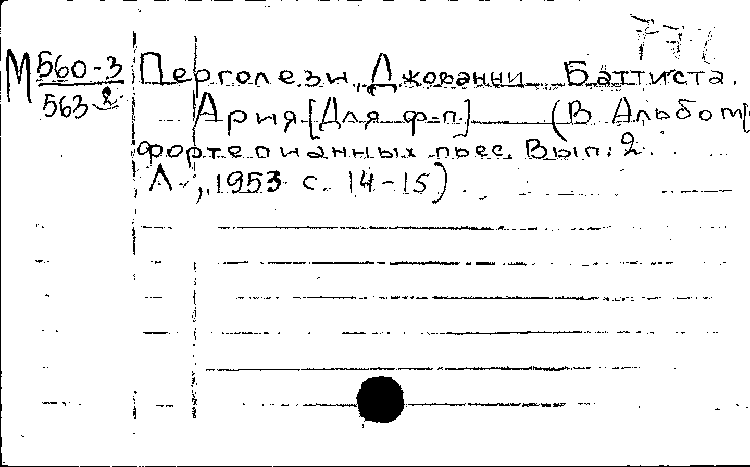 М 560-3 Перголези, Джованни Баттиста.
563 2 Ария [Для ф-п] (В Альбом
фортепианных пьес. Вып. 2.
Л., 1953 с. 14-15)